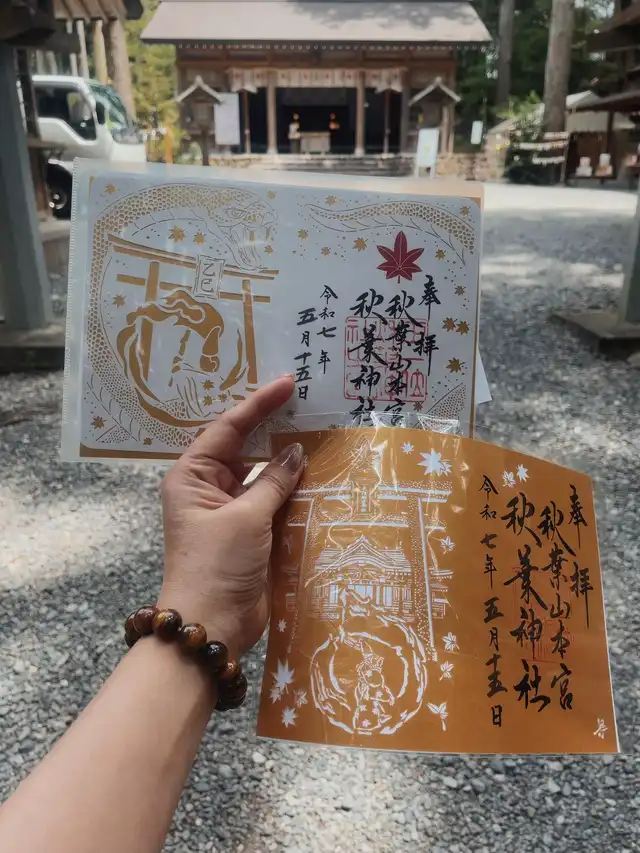 乙巳
奉拝
秋葉山本宮
秋葉神社
令和七年
五月十五日
奉拝
秋葉山本宮
秋葉神社
令和七年
五月十五日